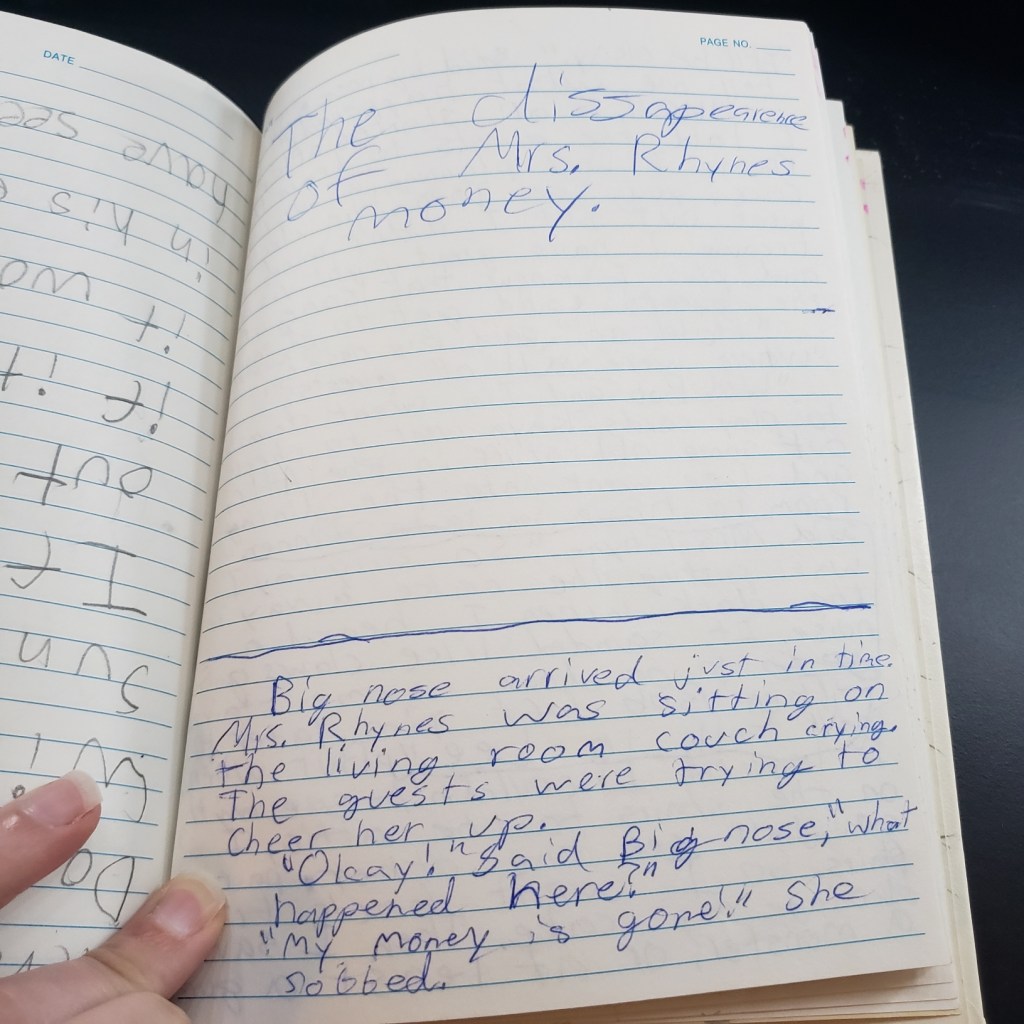 DATE
have see
in his
it wo
if it
out
If
sun
PAGE NO.
The dissapearence
of Mrs. Rhynes
money.
Big nose arrived just in time.
Mrs. Rhynes was sitting on
the living room couch crying.
The guests were trying to
cheer her up.
"Okay!" said Big nose, "what
happened here?"
"My money is gone!" She
sobbed.